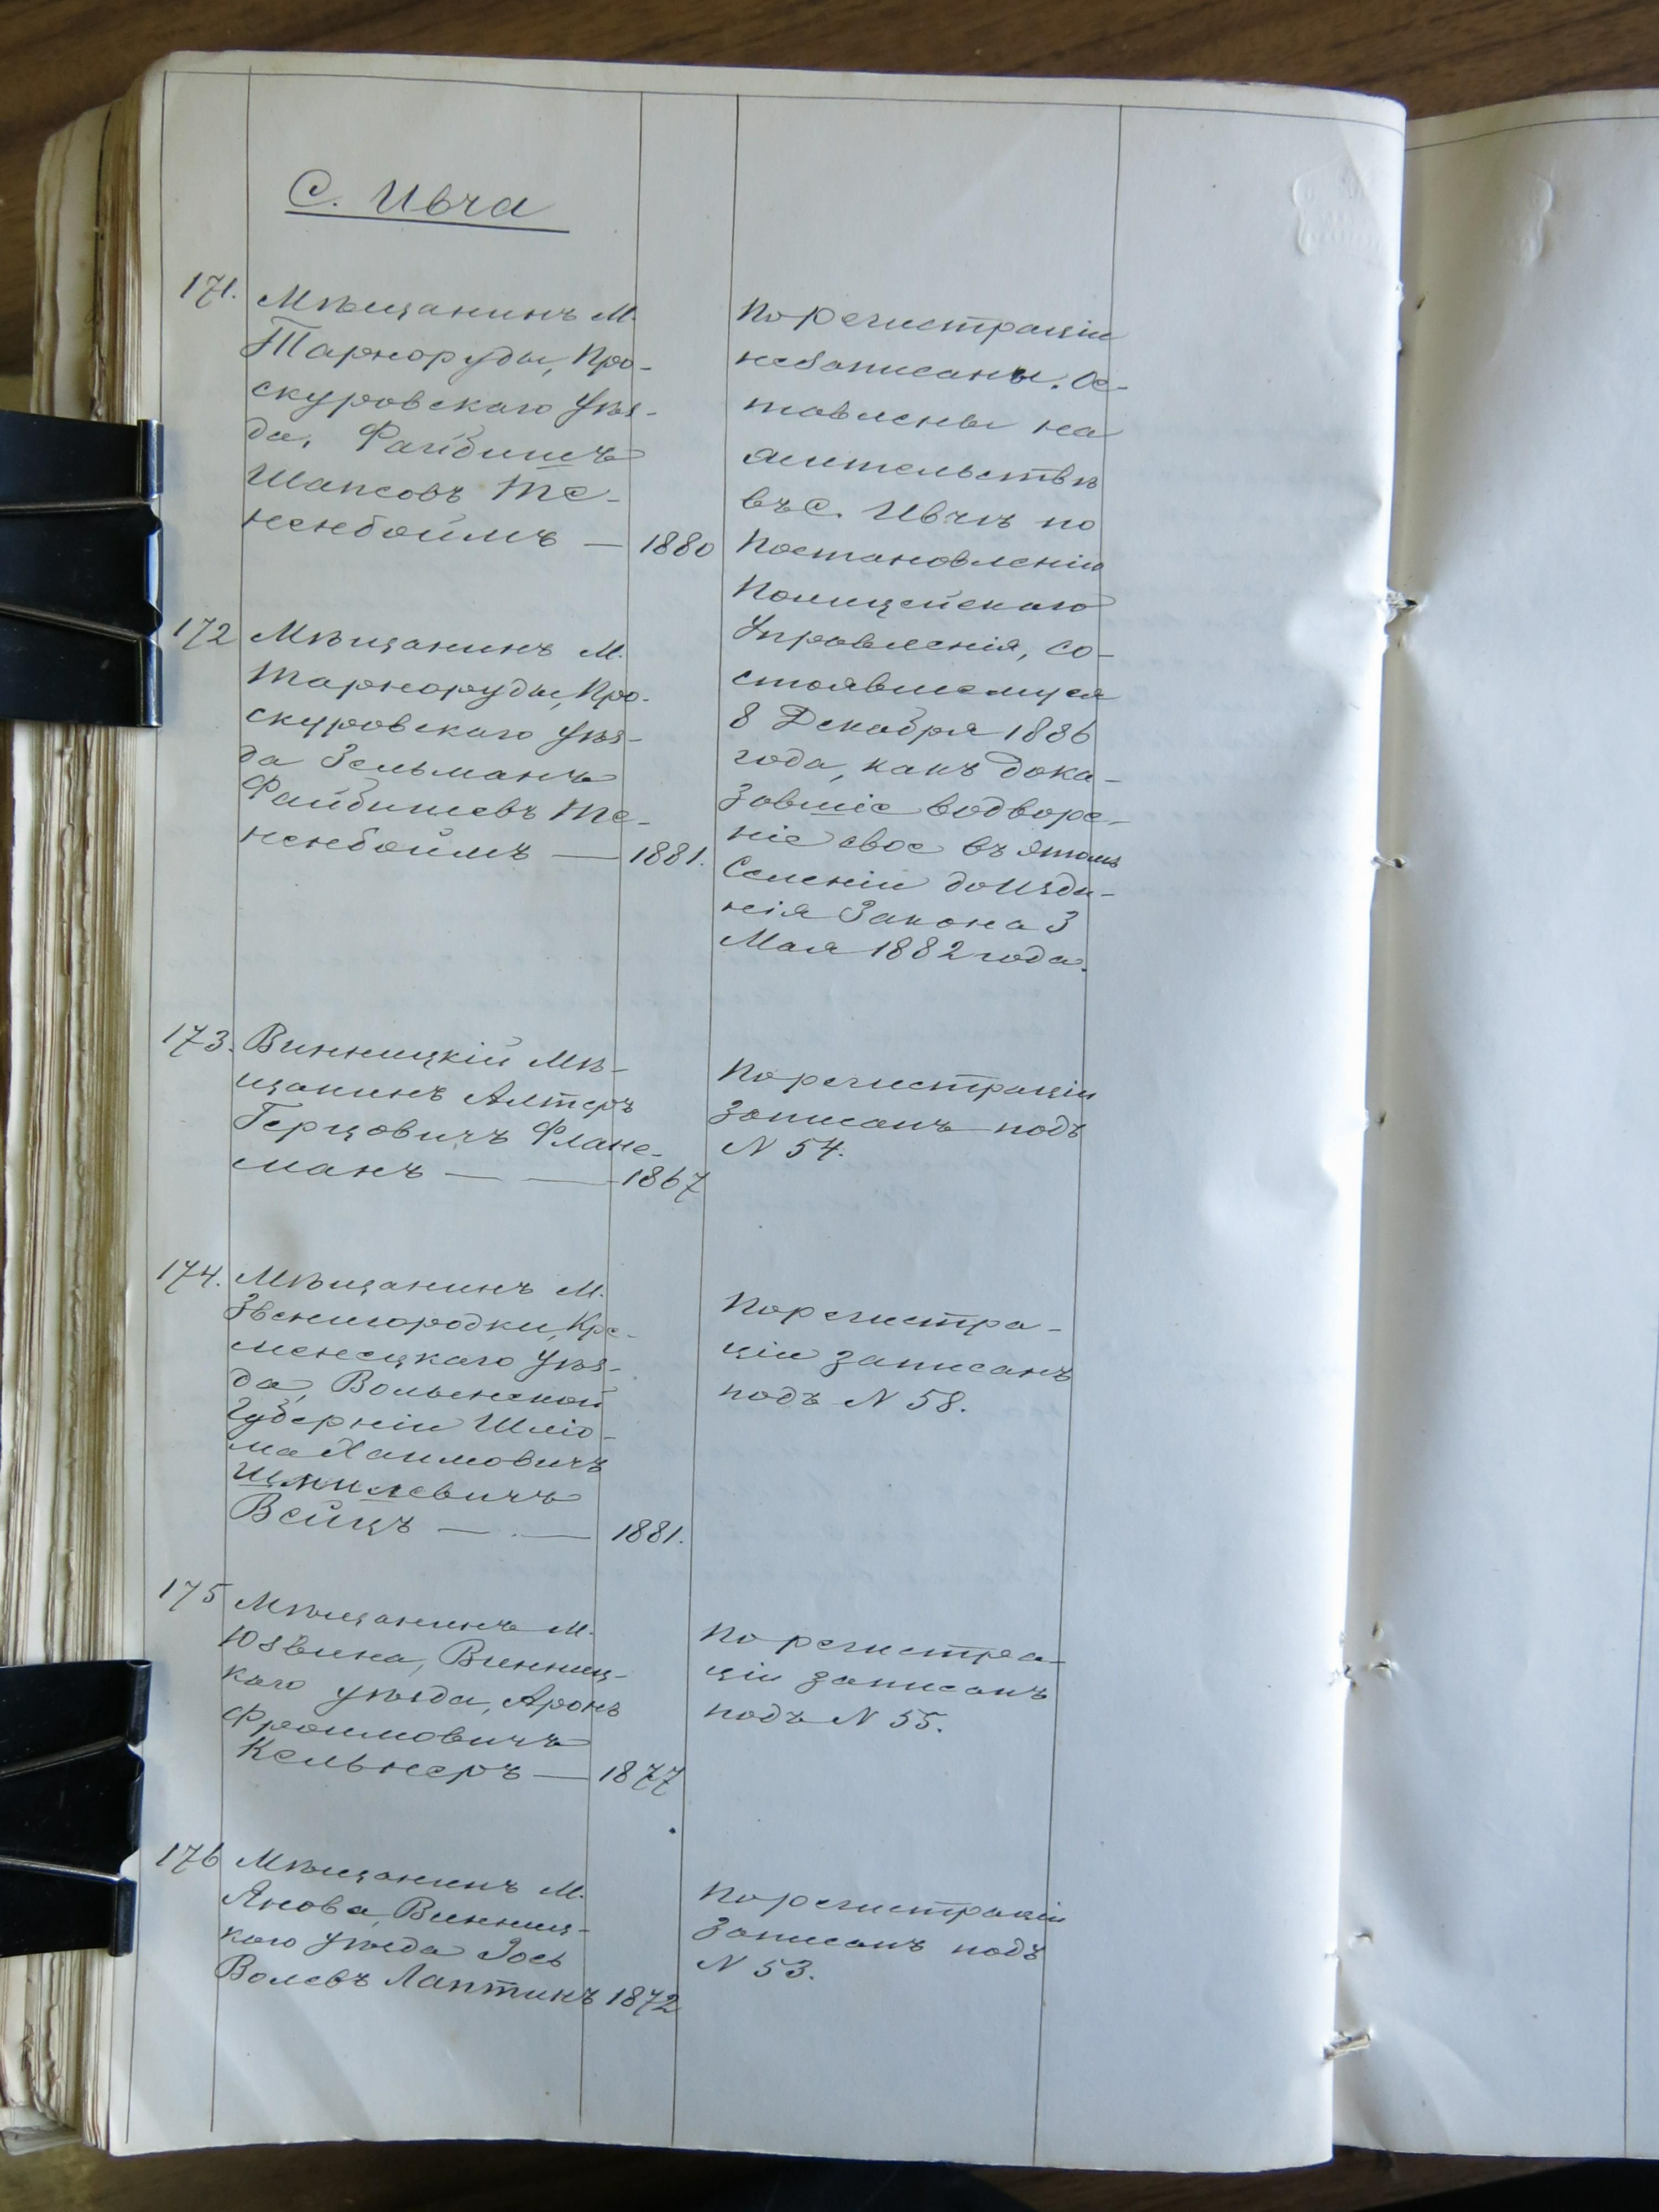 С. Ивча
171. Мѣщанинъ М.
Тарноруды, Про-
скуровскаго Уѣз-
да, Файбишъ
Шапсовъ Те-
ненбоймъ — 1880
По регистраціи
незаписаны. Ос-
тавлены на
жительствѣ
въ С. Ивчѣ по
Постановленію
Полицейскаго
Управленія, со-
стоявшемуся
8 Декабря 1886
года, какъ дока-
завшіе водворе-
ніе свое въ этомъ
Селеніи до изда-
нія Закона 3
Мая 1882 года.
172 Мѣщанинъ М.
Тарноруды, Про-
скуровскаго Уѣз-
да Зельманъ
Файбишевъ Те-
ненбоймъ — 1881.
173. Винницкій Мѣ-
щанинъ Алтеръ
Герцовичъ Флакс-
манъ — — 1867
По регистраціи
Записанъ подъ
N 54.
174. Мѣщанинъ М.
Звенигородки, Кре-
менецкаго Уѣз-
да, Волынской
Губерніи Шліо-
ма Хаимовичъ
Шмилевичъ
Вейцъ — — 1881.
По регистра-
ціи записанъ
подъ N 58.
175 Мѣщанинъ М.
Юзвина, Винниц-
каго уѣзда, Аронъ
Фроимовичъ
Кельнеръ — 1877
По регистра-
ціи записанъ
подъ N 55.
176 Мѣщанинъ М.
Янова, Винниц-
каго уѣзда Іось
Волевъ Лаптикъ 1872
По регистраціи
Записанъ подъ
N 53.